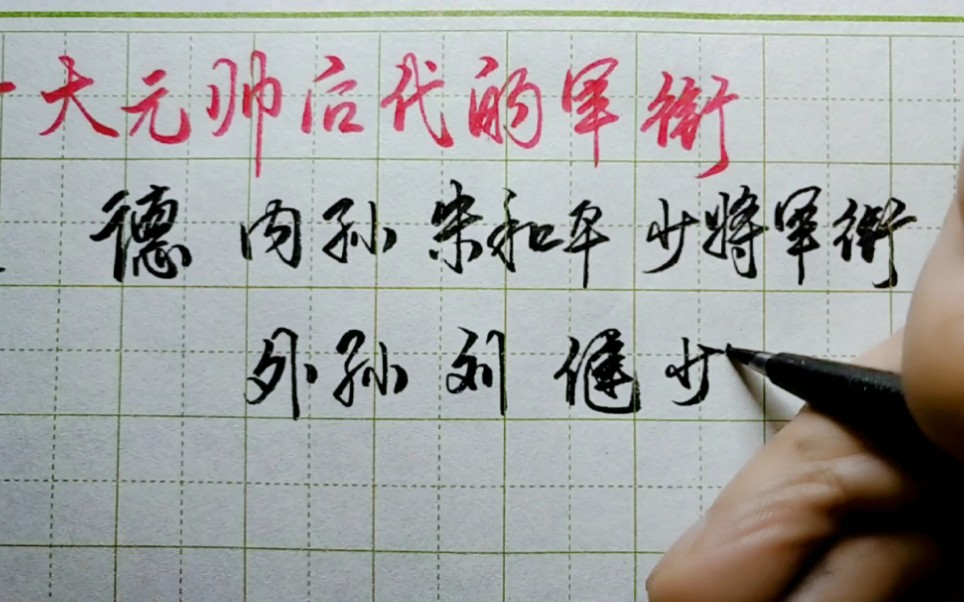 十大元帅后代的军衔
德 内孙 朱和平 少将军衔
外孙 刘 健 少